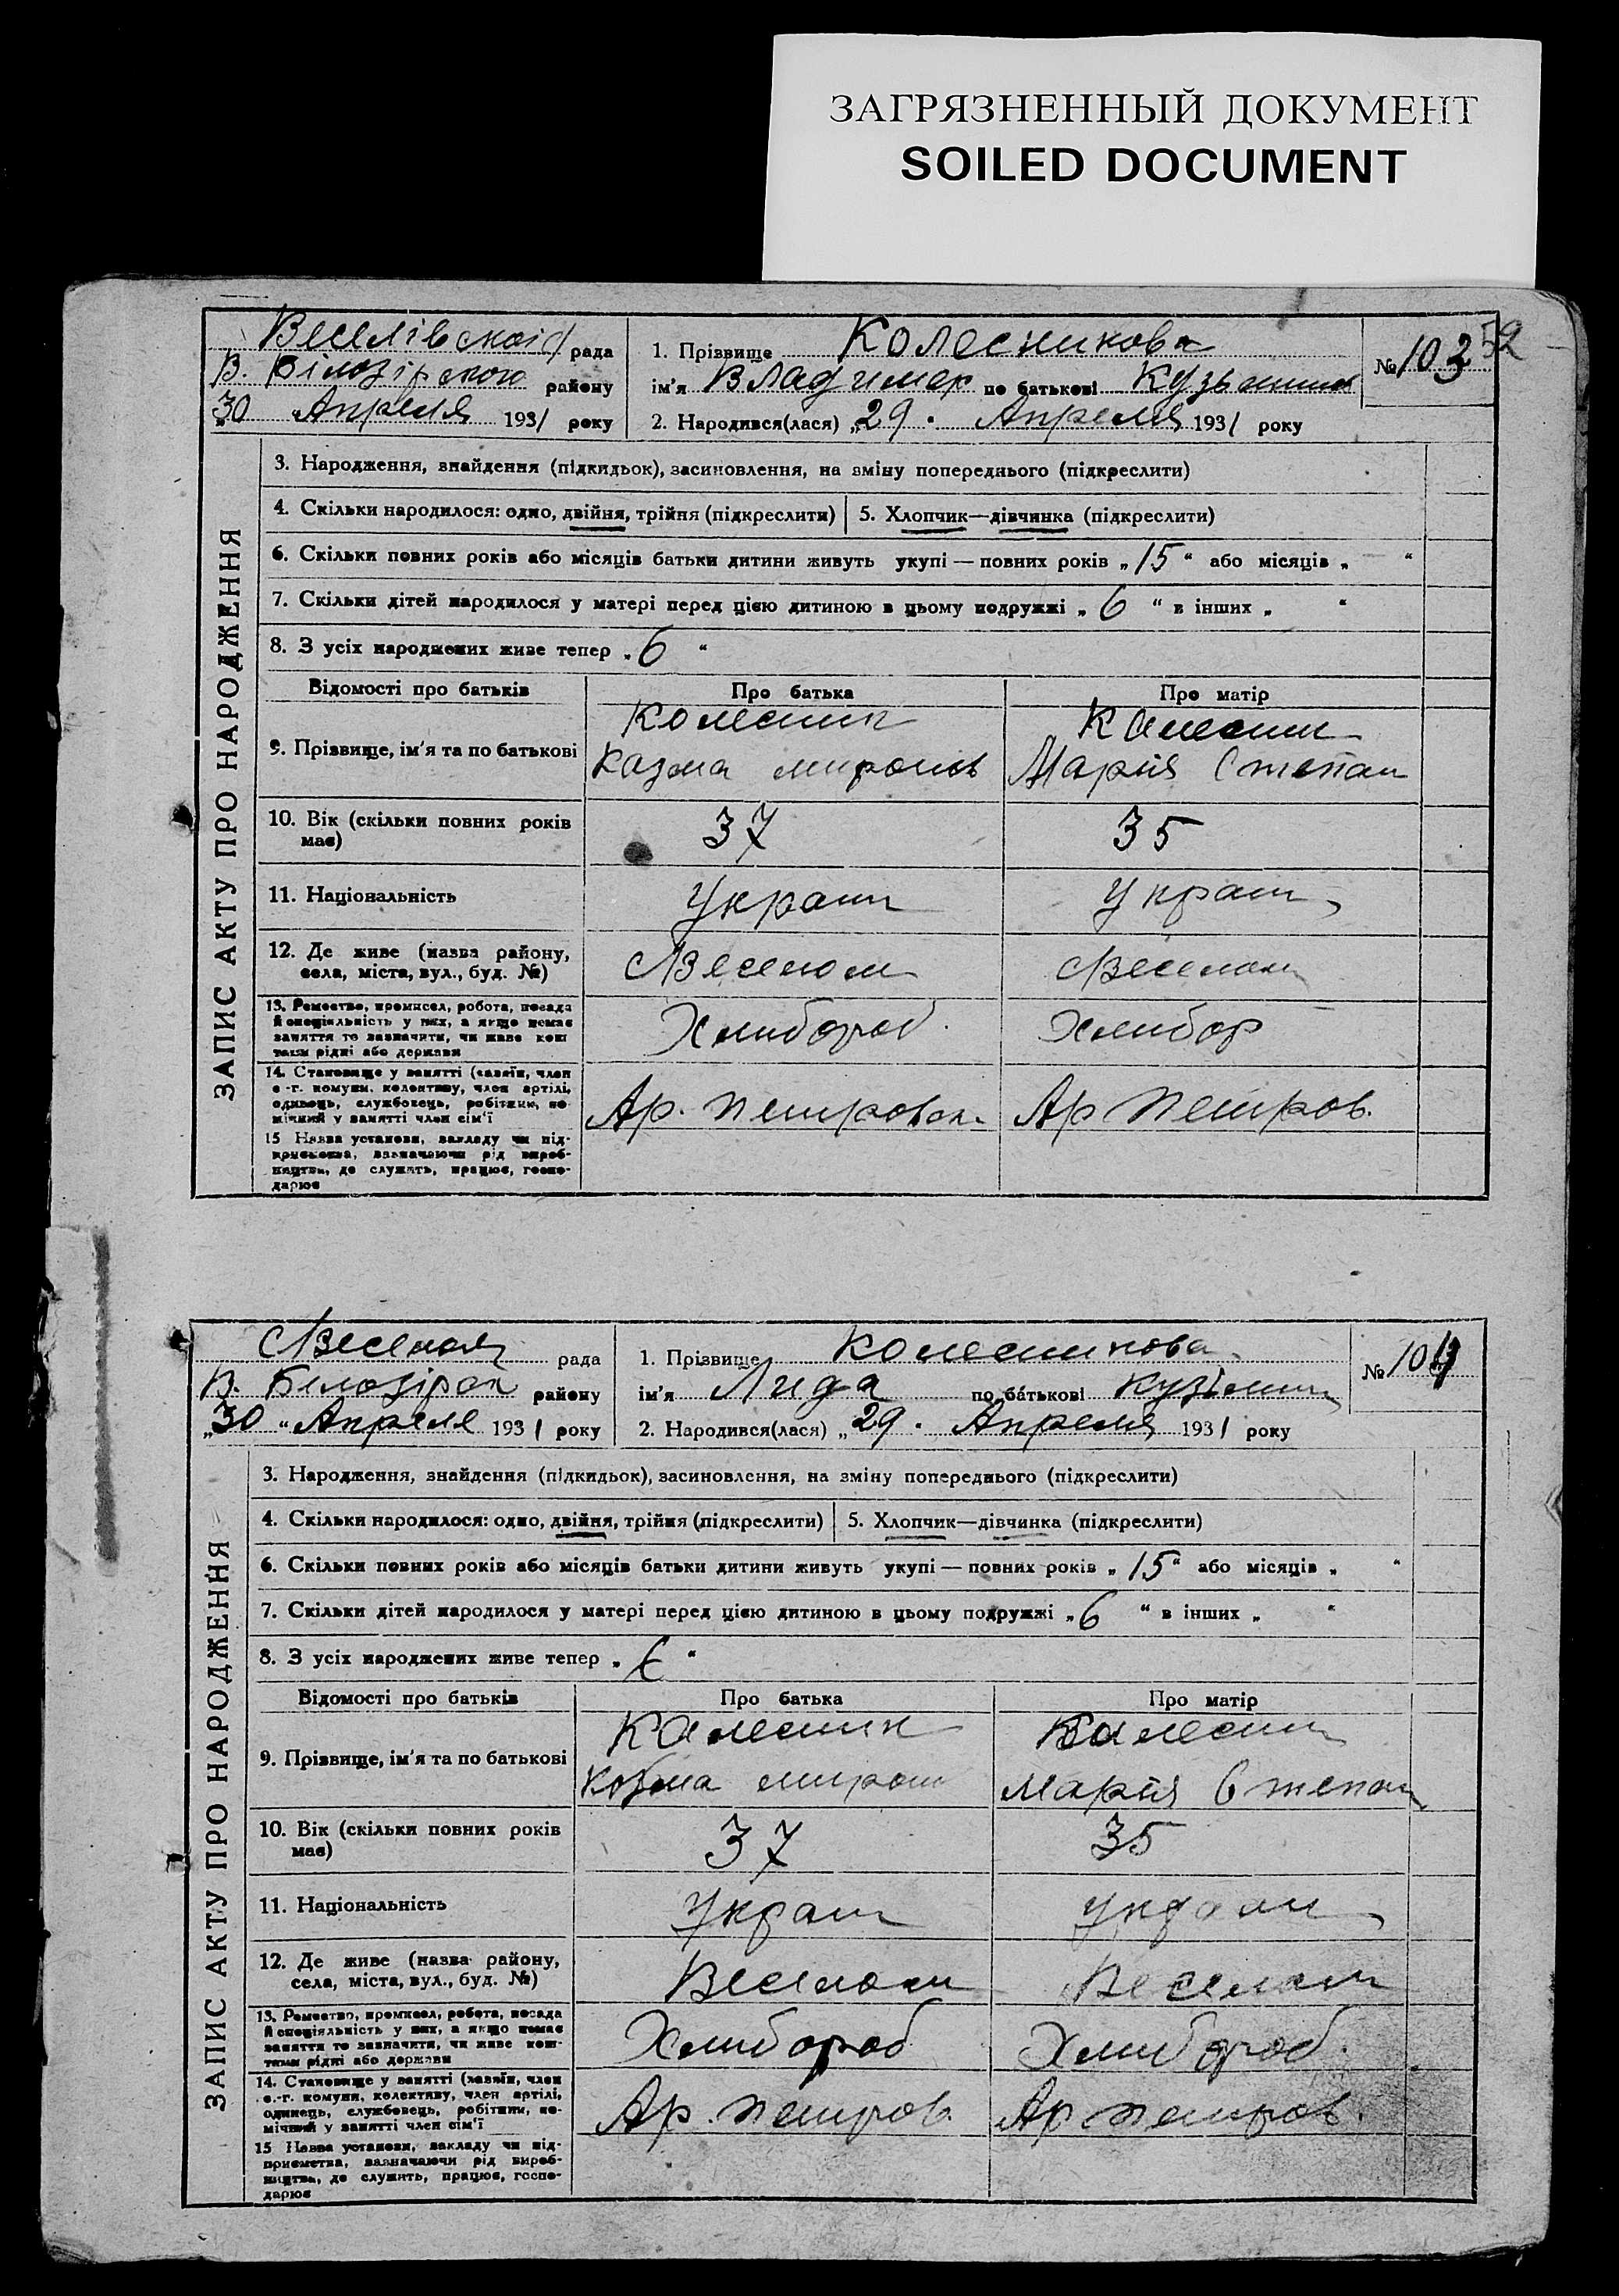 ЗАГРЯЗНЕННЫЙ ДОКУМЕНТ
SOILED DOCUMENT
52
Веселівської рада
В. Білозірского району
„30 " Апреля 1931 року
1. Прізвище Колесникова
ім'я Владимер по батькові
2. Народився(лася) „29. Апреля 1931 року
№ 103
ЗАПИС АКТУ ПРО НАРОДЖЕННЯ
3. Народження, знайдення (підкидьок), засиновлення, на зміну попереднього (підкреслити)
4. Скільки народилося: одно, двійня, трійня (підкреслити) 5. Хлопчик—дівчинка (підкреслити)
6. Скільки повних років або місяців батьки дитини живуть укупі — повних років „15" або місяців „ "
7. Скільки дітей народилося у матері перед цією дитиною в цьому подружжі „6" в інших „ "
8. З усіх народжених живе тепер „6"
Відомості про батьків Про батька Про матір
9. Прізвище, ім'я та по батькові
Колесник Калесник
Козма миронов Мария Степан
10. Вік (скільки повних років має) 37 35
11. Національність Украин Украин
12. Де живе (назва району, села, міста, вул., буд. №) Веселом Веселом
13. Ремество, промисел, робота, посада
й спеціяльність у них, а якщо немає
заняття то зазначити, чи живе кош-
тами рідні або держави
Хлибороб. Хлибор
14. Становище у занятті (хазяїн, член
с.-г. комуни, колективу, член артілі,
одинець, службовець, робітник, по-
мічний у занятті член сім'ї
Ар. Петровск. Ар Петров.
15 Назва установи, закладу чи під-
приємства, зазначаючи рід вироб-
ництва, де служить, працює, госпо-
дарює
Веселой рада
В. Білозірск району
„30 " Апреля 1931 року
1. Прізвище Колесникова
ім'я Лида по батькові Кузімин
2. Народився(лася) „29. Апреля 1931 року
№ 104
ЗАПИС АКТУ ПРО НАРОДЖЕННЯ
3. Народження, знайдення (підкидьок), засиновлення, на зміну попереднього (підкреслити)
4. Скільки народилося: одно, двійня, трійня (підкреслити) 5. Хлопчик—дівчинка (підкреслити)
6. Скільки повних років або місяців батьки дитини живуть укупі — повних років „15" або місяців „ "
7. Скільки дітей народилося у матері перед цією дитиною в цьому подружжі „6" в інших „ "
8. З усіх народжених живе тепер „6"
Відомості про батьків Про батька Про матір
9. Прізвище, ім'я та по батькові
Калесник Калесник
Козма мирон Мария Степан
10. Вік (скільки повних років має) 37 35
11. Національність Украин Украин
12. Де живе (назва району, села, міста, вул., буд. №) Веселом Веселом
13. Ремество, промисел, робота, посада
й спеціяльність у них, а якщо немає
заняття то зазначити, чи живе кош-
тами рідні або держави
Хлибороб Хлибороб.
14. Становище у занятті (хазяїн, член
с.-г. комуни, колективу, член артілі,
одинець, службовець, робітник, по-
мічний у занятті член сім'ї
Ар. Петров. Ар Петров.
15 Назва установи, закладу чи під-
приємства, зазначаючи рід вироб-
ництва, де служить, працює, госпо-
дарює